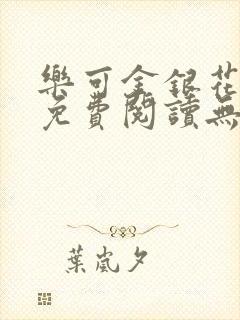 樂可金銀花
免費閱讀無
葉嵐夕